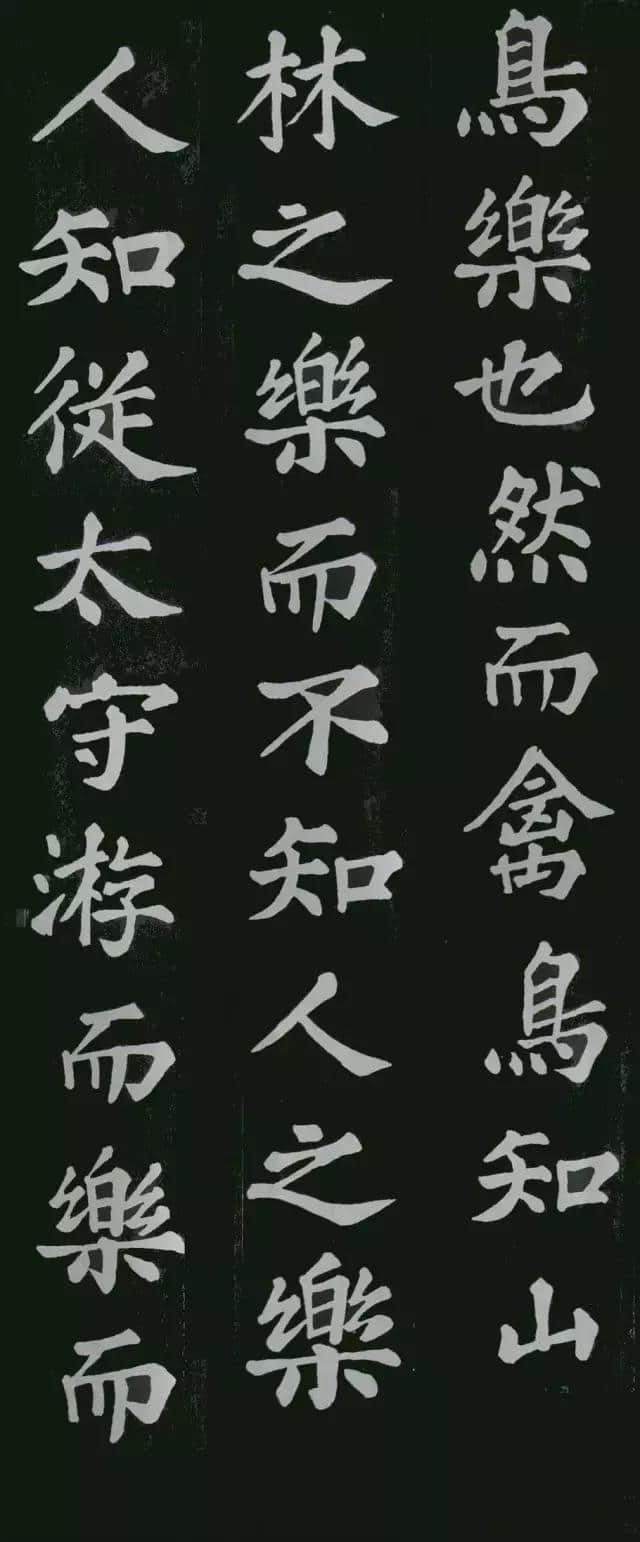 鳥樂也然而禽鳥知山
林之樂而不知人之樂
人知從太守游而樂而